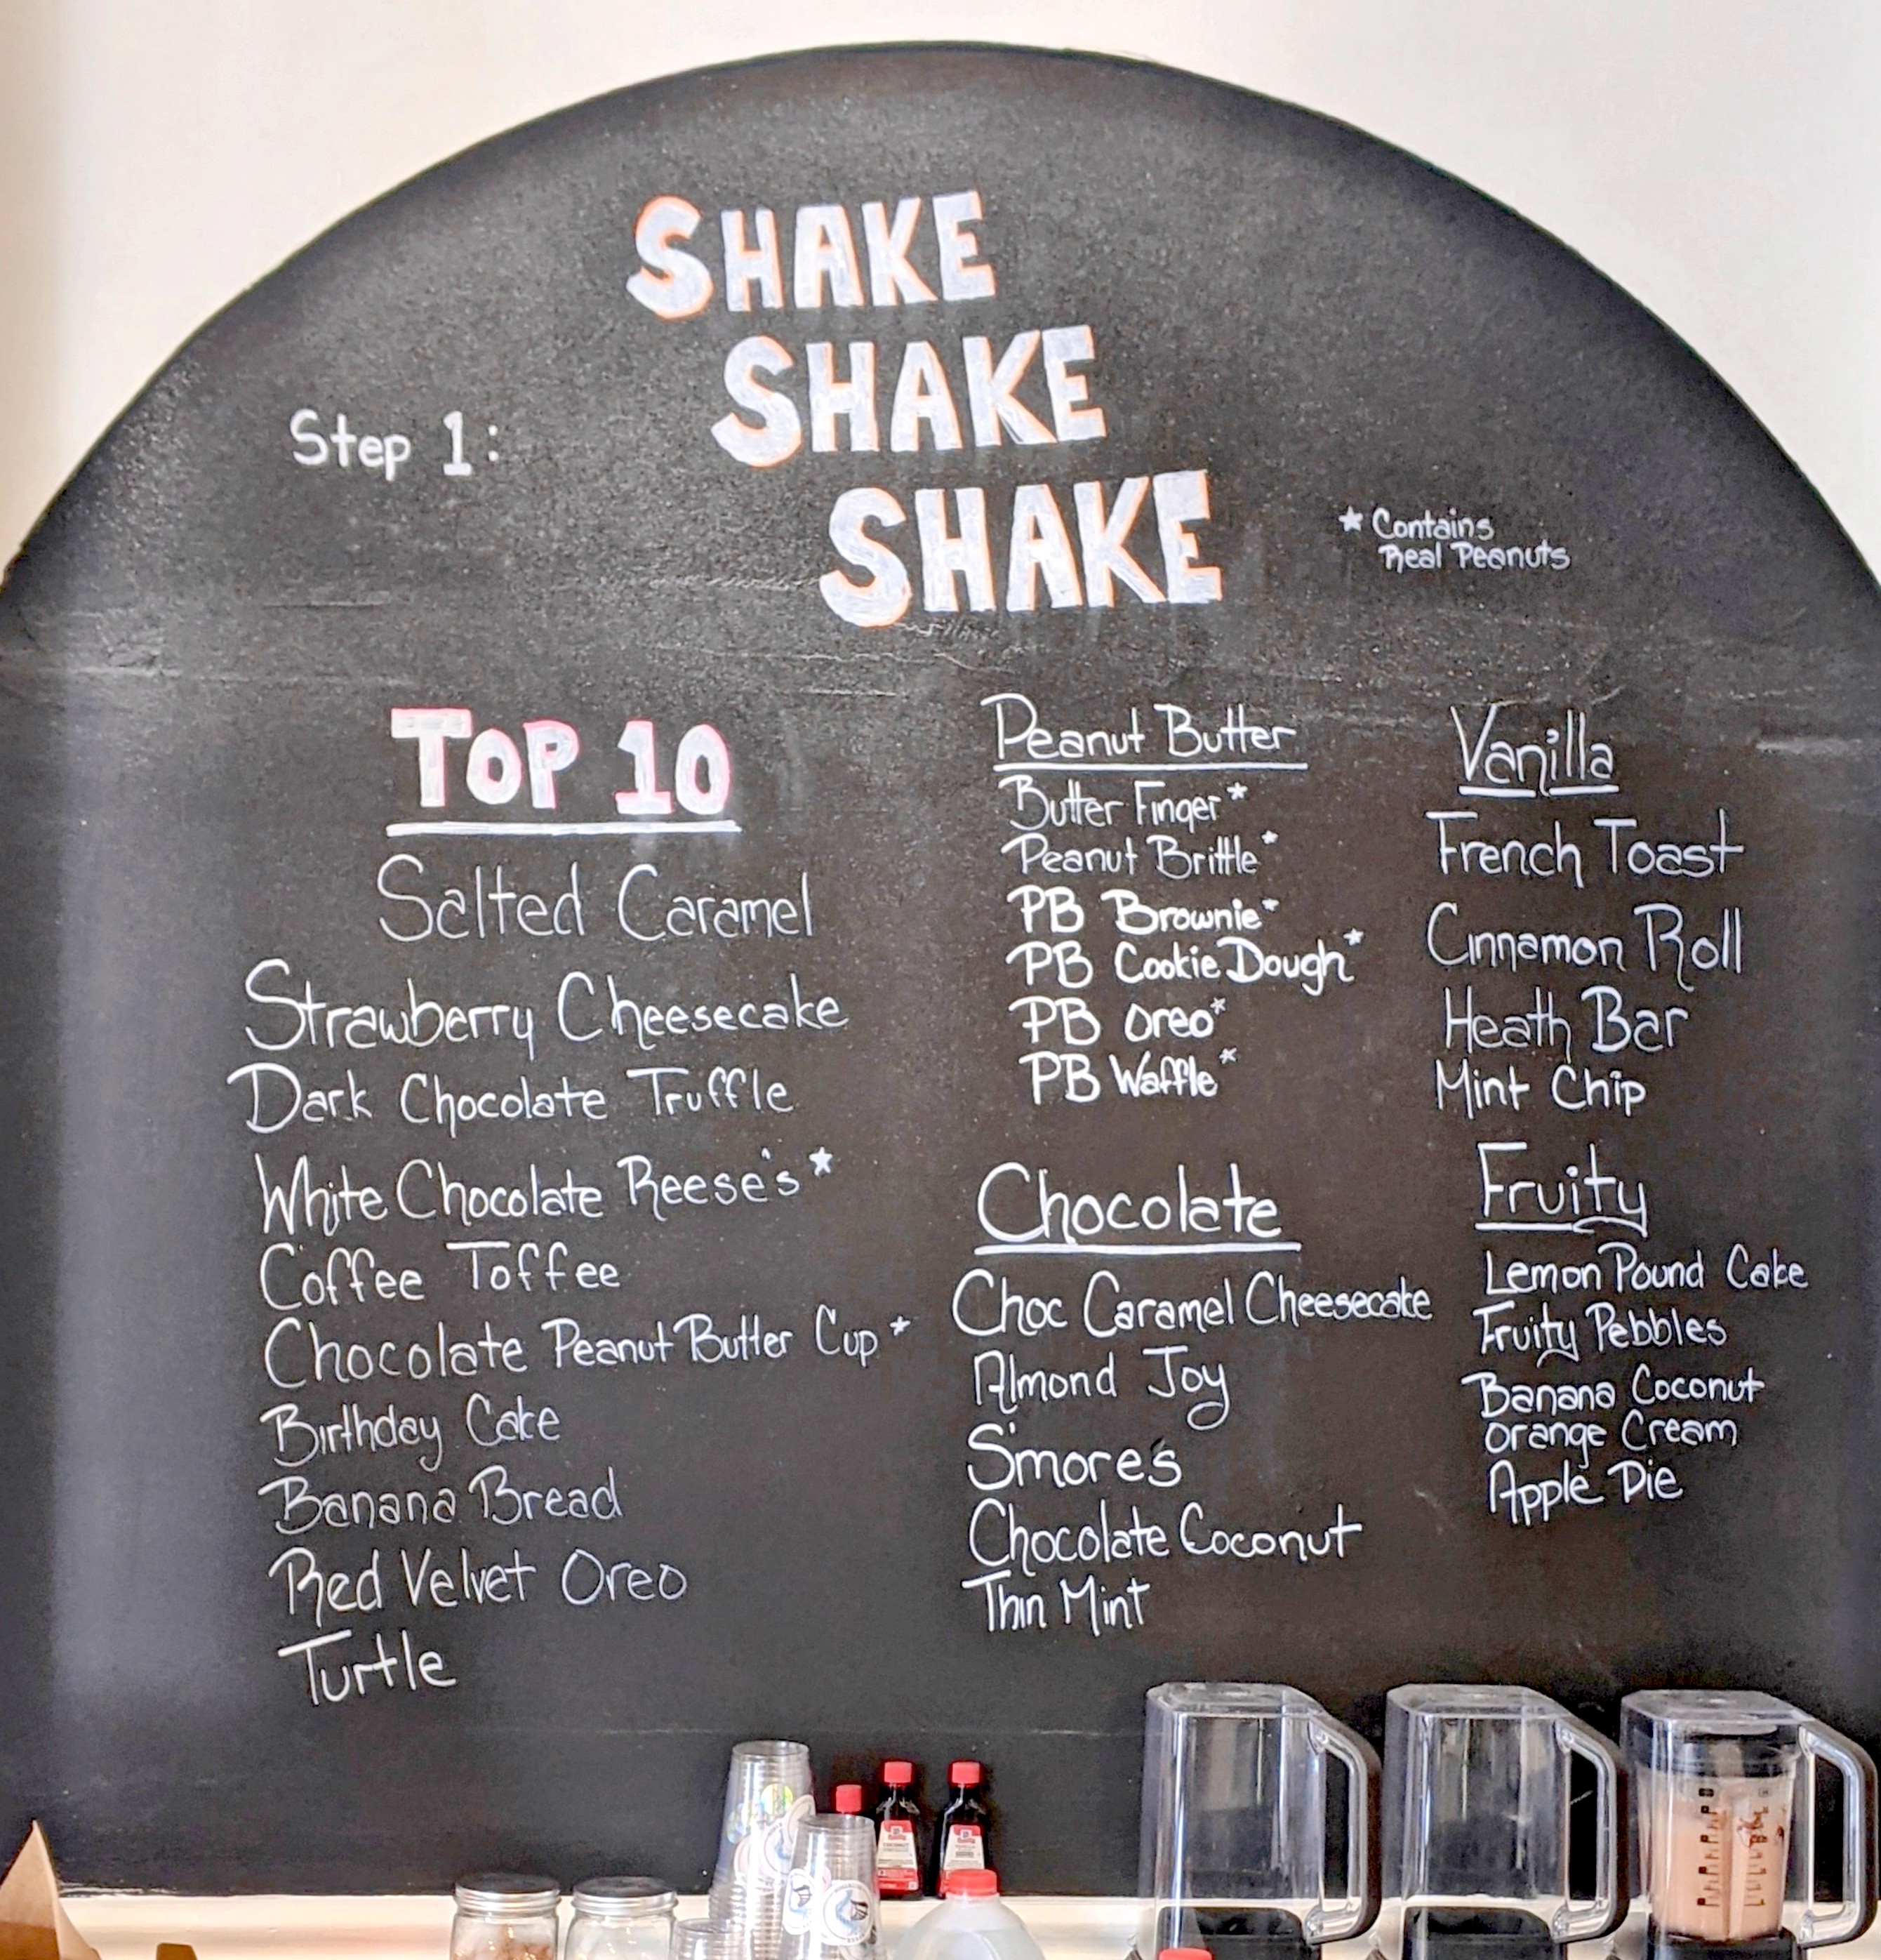 SHAKE
SHAKE
Step 1:
SHAKE
* Contains
Real Peanuts
TOP 10
Salted Caramel
Strawberry Cheesecake
Dark Chocolate Truffle
White Chocolate Reese's*
Coffee Toffee
Chocolate Peanut Butter Cup*
Birthday Cake
Banana Bread
Red Velvet Oreo
Turtle
Peanut Butter
Butter Finger*
Peanut Brittle*
PB Brownie*
PB Cookie Dough*
PB Oreo*
PB Waffle*
Chocolate
Choc Caramel Cheesecake
Almond Joy
S'more's
Chocolate Coconut
Thin Mint
Vanilla
French Toast
Cinnamon Roll
Heath Bar
Mint Chip
Fruity
Lemon Pound Cake
Fruity Pebbles
Banana Coconut
Orange Cream
Apple Pie